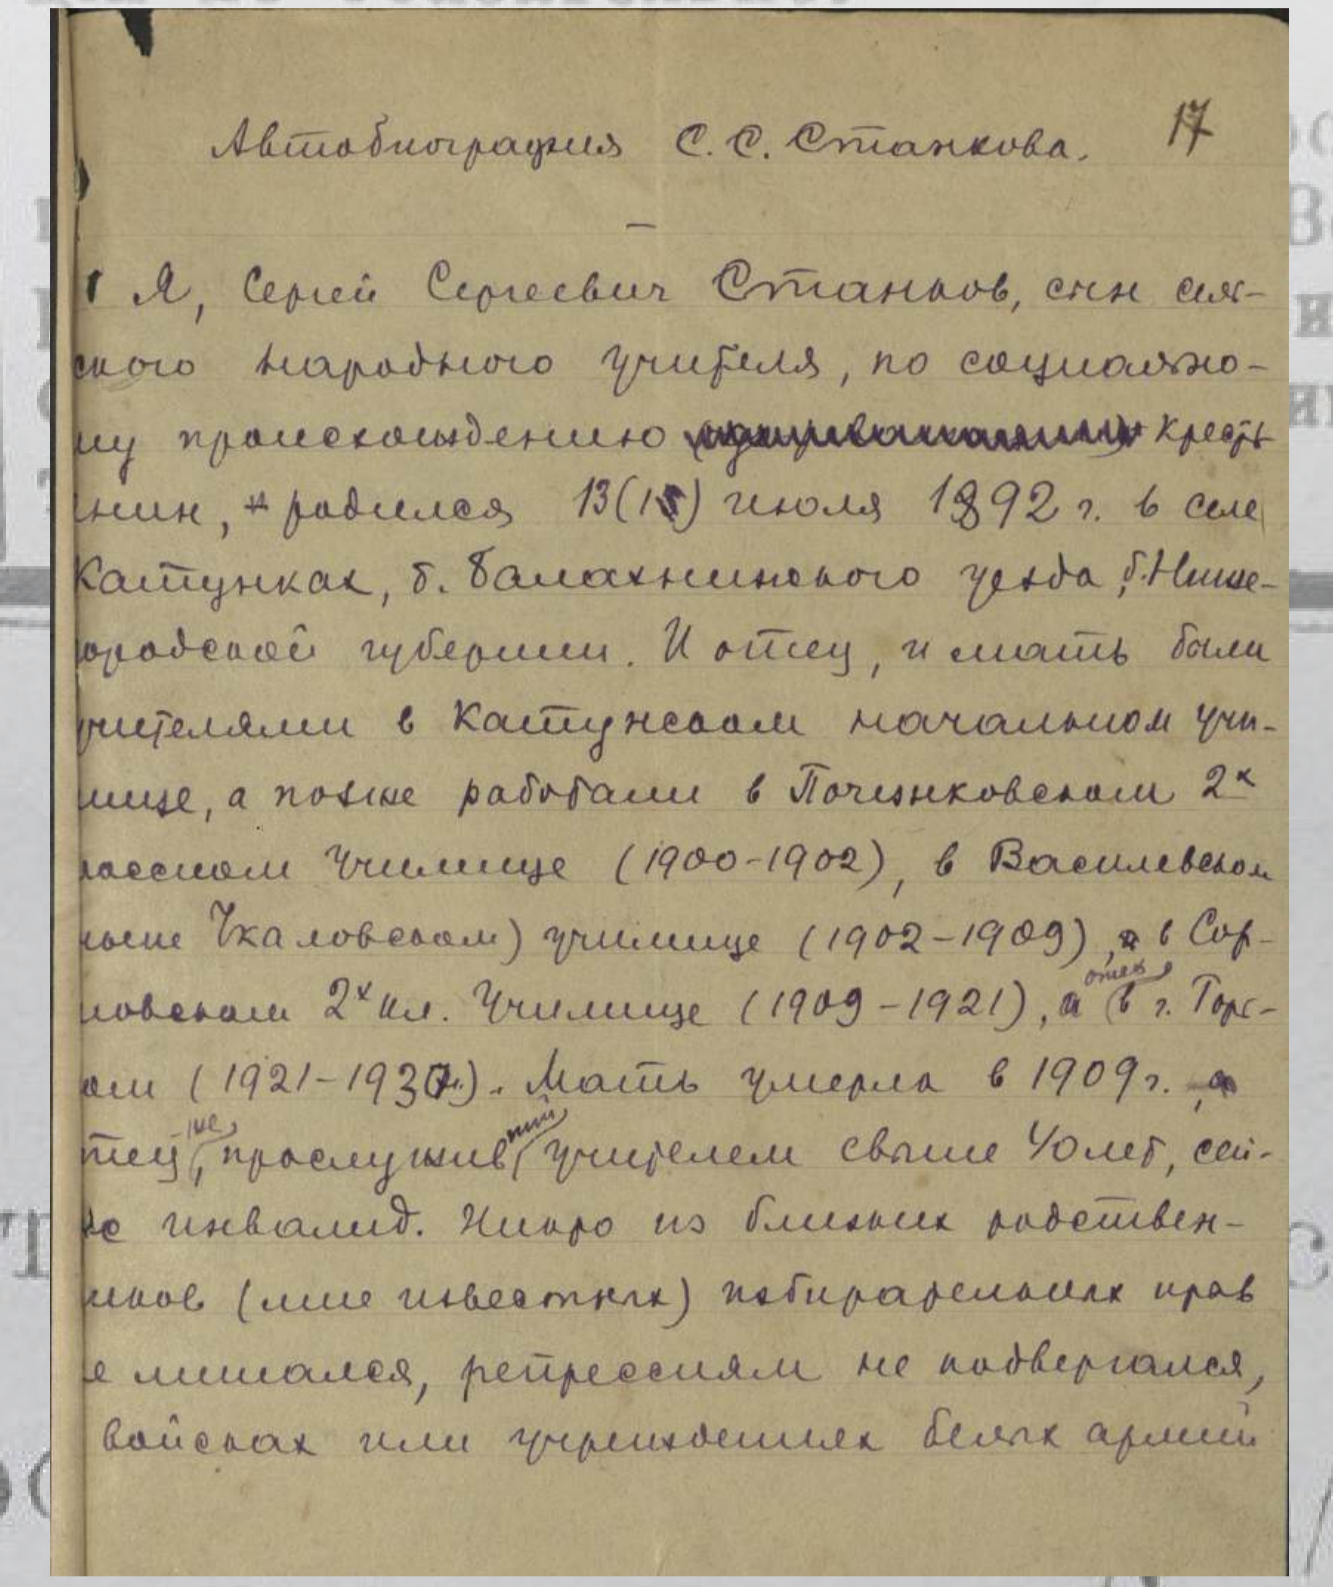 Автобиография С. С. Станкова. 17
Я, Сергей Сергеевич Станков, сын сель-
ского народного учителя, по социально-
му происхождению кресть
нин, родился 13(15) июля 1892 г. в селе
Катунках, б. Балахнинского уезда, б. Ниже-
ородской губернии. И отец, и мать были
учителями в Катунском начальном учи-
лище, а позже работали в Починковском 2х
лассном Училище (1900-1902), в Василевском
ныне Чкаловском) училище (1902-1909), в Сор-
мовском 2х кл. Училище (1909-1921), а отец в г. Горь-
ом (1921-193 ). Мать умерла в 1909 г.,
тец же, прослуживший учителем свыше 40 лет, сей-
ас инвалид. Никто из близких родствен-
иков (мне известных) избирательных прав
е лишался, репрессиям не подвергался,
войсках или учреждениях белых армий